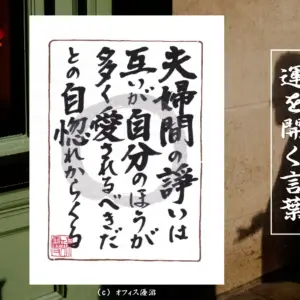 夫婦間の諍いは
互いが自分のほうが
多く愛されるべきだ
との自惚れからくる
運を開く言葉
(c) オフィス優游